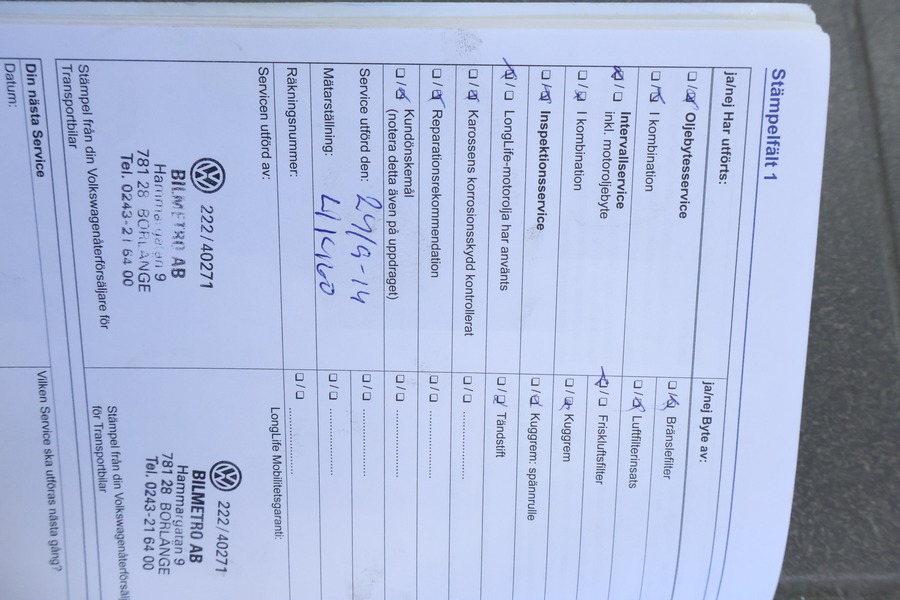 Stämpelfält 1
ja/nej Har utförts:
/ Oljebytesservice
/ I kombination
/ Intervallservice
inkl. motoroljebyte
/ I kombination
/ Inspektionsservice
/ LongLife-motorolja har använts
/ Karossens korrosionsskydd kontrollerat
/ Reparationsrekommendation
/ Kundönskemål
(notera detta även på uppdraget)
Service utförd den: 29/9-14
Mätarställning:
Räkningsnummer:
Servicen utförd av:
222/40271
BILMETRO AB
Hammargatan 9
781 28 BORLÄNGE
Tel. 0243-21 64 00
Stämpel från din Volkswagenåterförsäljare för
Transportbilar
Din nästa Service
Datum:
ja/nej Byte av:
/ Bränslefilter
/ Luftfilterinsats
/ Friskluftsfilter
/ Kuggrem
/ Kuggrem: spännrulle
/ Tändstift
/ ................
/ ................
/ ................
/ ................
/ ................
/ ................
LongLife Mobilitetsgaranti:
222/40271
BILMETRO AB
Hammargatan 9
781 28 BORLÄNGE
Tel. 0243-21 64 00
Stämpel från din Volkswagenåterförsäl
för Transportbilar
Vilken Service ska utföras nästa gång?